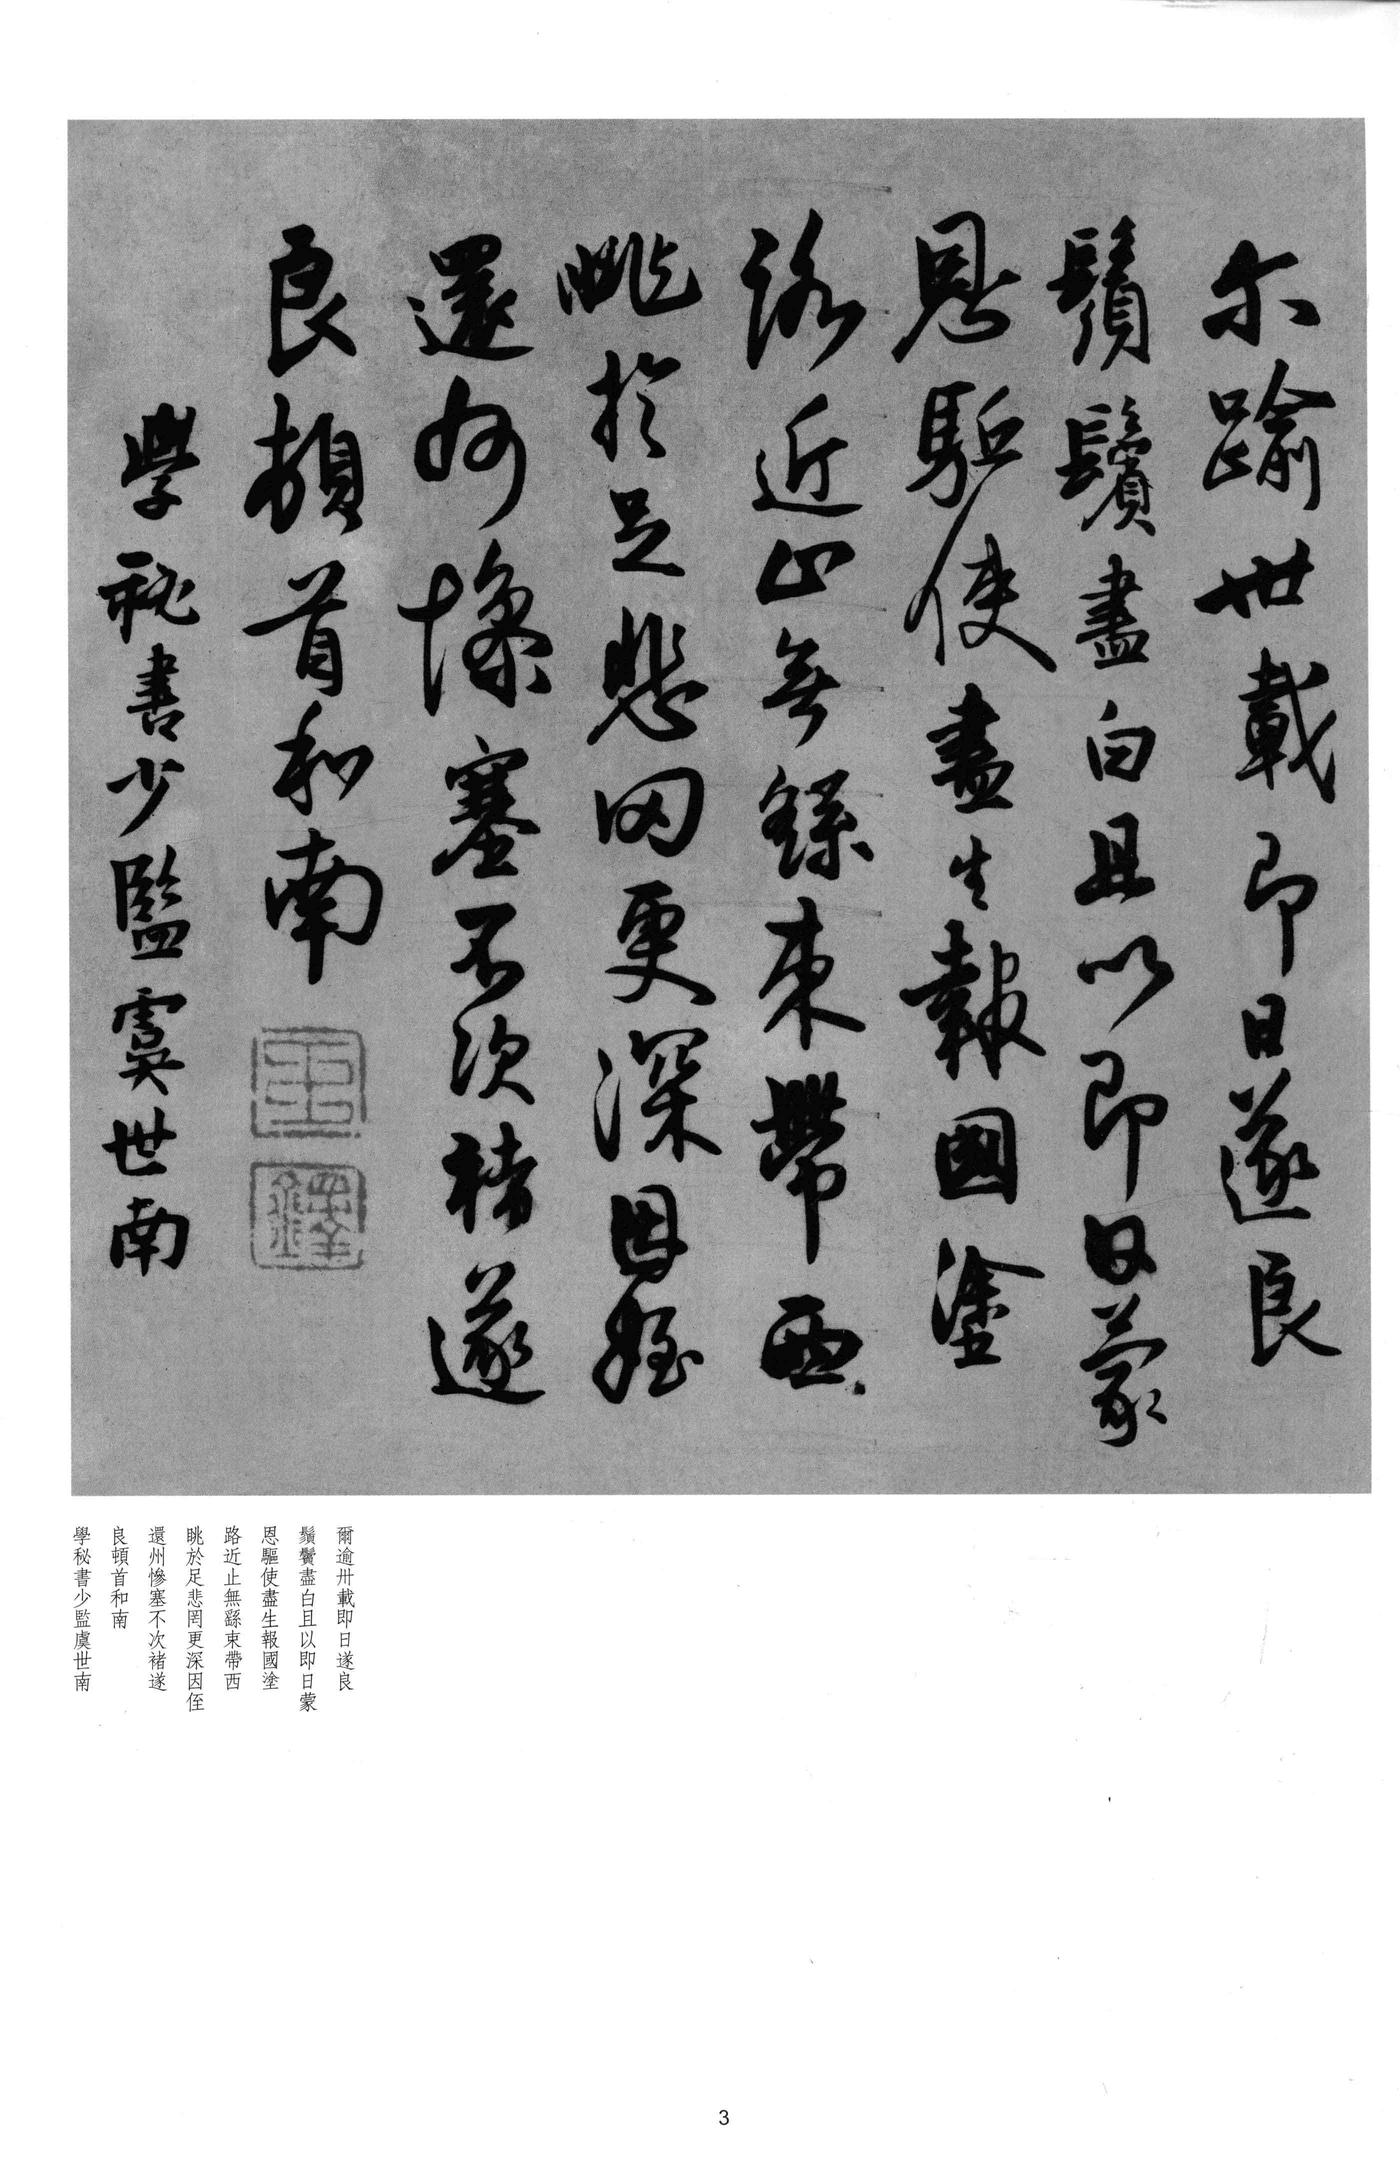 尔踰卅載即日遂良
鬚鬢盡白且以即日蒙
恩驅使盡生報國塗
路近止無繇束帶西
眺於足悲罔更深因姪
還州慘塞不次褚遂
良頓首和南
學秘書少監虞世南
爾逾卅載即日遂良
鬚鬢盡白且以即日蒙
恩驅使盡生報國塗
路近止無繇束帶西
眺於足悲罔更深因侄
還州慘塞不次褚遂
良頓首和南
學秘書少監虞世南
3